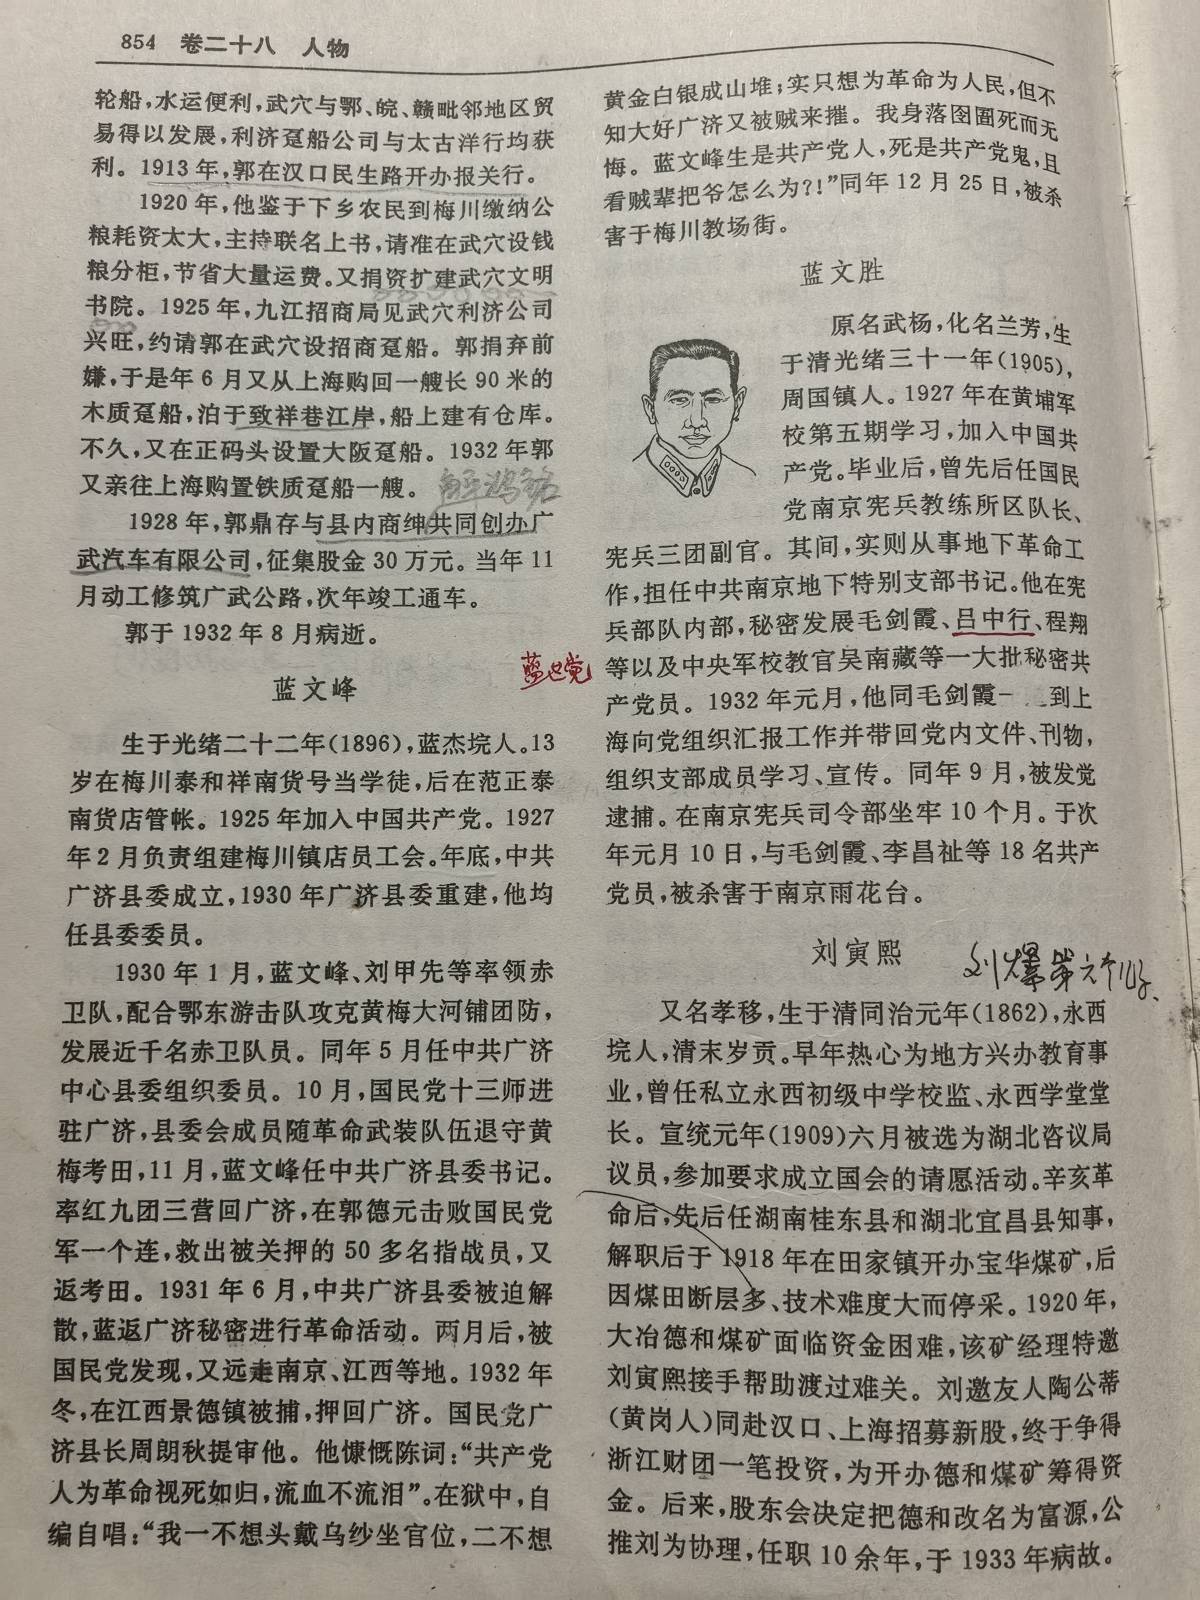 854 卷二十八 人物
轮船，水运便利，武穴与鄂、皖、赣毗邻地区贸
易得以发展，利济趸船公司与太古洋行均获
利。1913年，郭在汉口民生路开办报关行。
1920年，他鉴于下乡农民到梅川缴纳公
粮耗资太大，主持联名上书，请准在武穴设钱
粮分柜，节省大量运费。又捐资扩建武穴文明
书院。1925年，九江招商局见武穴利济公司
兴旺，约请郭在武穴设招商趸船。郭捐弃前
嫌，于是年6月又从上海购回一艘长90米的
木质趸船，泊于致祥巷江岸，船上建有仓库。
不久，又在正码头设置大阪趸船。1932年郭
又亲往上海购置铁质趸船一艘。
1928年，郭鼎存与县内商绅共同创办广
武汽车有限公司，征集股金30万元。当年11
月动工修筑广武公路，次年竣工通车。
郭于1932年8月病逝。
蓝文峰
生于光绪二十二年(1896)，蓝杰垸人。13
岁在梅川泰和祥南货号当学徒，后在范正泰
南货店管帐。1925年加入中国共产党。1927
年2月负责组建梅川镇店员工会。年底，中共
广济县委成立，1930年广济县委重建，他均
任县委委员。
1930年1月，蓝文峰、刘甲先等率领赤
卫队，配合鄂东游击队攻克黄梅大河铺团防，
发展近千名赤卫队员。同年5月任中共广济
中心县委组织委员。10月，国民党十三师进
驻广济，县委会成员随革命武装队伍退守黄
梅考田，11月，蓝文峰任中共广济县委书记。
率红九团三营回广济，在郭德元击败国民党
军一个连，救出被关押的50多名指战员，又
返考田。1931年6月，中共广济县委被迫解
散，蓝返广济秘密进行革命活动。两月后，被
国民党发现，又远走南京、江西等地。1932年
冬，在江西景德镇被捕，押回广济。国民党广
济县长周朗秋提审他。他慷慨陈词：“共产党
人为革命视死如归，流血不流泪”。在狱中，自
编自唱：“我一不想头戴乌纱坐官位，二不想
黄金白银成山堆；实只想为革命为人民，但不
知大好广济又被贼来摧。我身落囹圄死而无
悔。蓝文峰生是共产党人，死是共产党鬼，且
看贼辈把爷怎么为?!”同年12月25日，被杀
害于梅川教场街。
蓝文胜
原名武杨，化名兰芳，生
于清光绪三十一年(1905)，
周国镇人。1927年在黄埔军
校第五期学习，加入中国共
产党。毕业后，曾先后任国民
党南京宪兵教练所区队长、
宪兵三团副官。其间，实则从事地下革命工
作，担任中共南京地下特别支部书记。他在宪
兵部队内部，秘密发展毛剑霞、吕中行、程翔
等以及中央军校教官吴南藏等一大批秘密共
产党员。1932年元月，他同毛剑霞一 到上
海向党组织汇报工作并带回党内文件、刊物，
组织支部成员学习、宣传。同年9月，被发觉
逮捕。在南京宪兵司令部坐牢10个月。于次
年元月10日，与毛剑霞、李昌祉等18名共产
党员，被杀害于南京雨花台。
刘寅熙
刘燡第六个儿子、
又名孝移，生于清同治元年(1862)，永西
垸人，清末岁贡。早年热心为地方兴办教育事
业，曾任私立永西初级中学校监、永西学堂堂
长。宣统元年(1909)六月被选为湖北咨议局
议员，参加要求成立国会的请愿活动。辛亥革
命后，先后任湖南桂东县和湖北宜昌县知事，
解职后于1918年在田家镇开办宝华煤矿，后
因煤田断层多、技术难度大而停采。1920年，
大冶德和煤矿面临资金困难，该矿经理特邀
刘寅熙接手帮助渡过难关。刘邀友人陶公蒂
(黄岗人)同赴汉口、上海招募新股，终于争得
浙江财团一笔投资，为开办德和煤矿筹得资
金。后来，股东会决定把德和改名为富源，公
推刘为协理，任职10余年，于1933年病故。